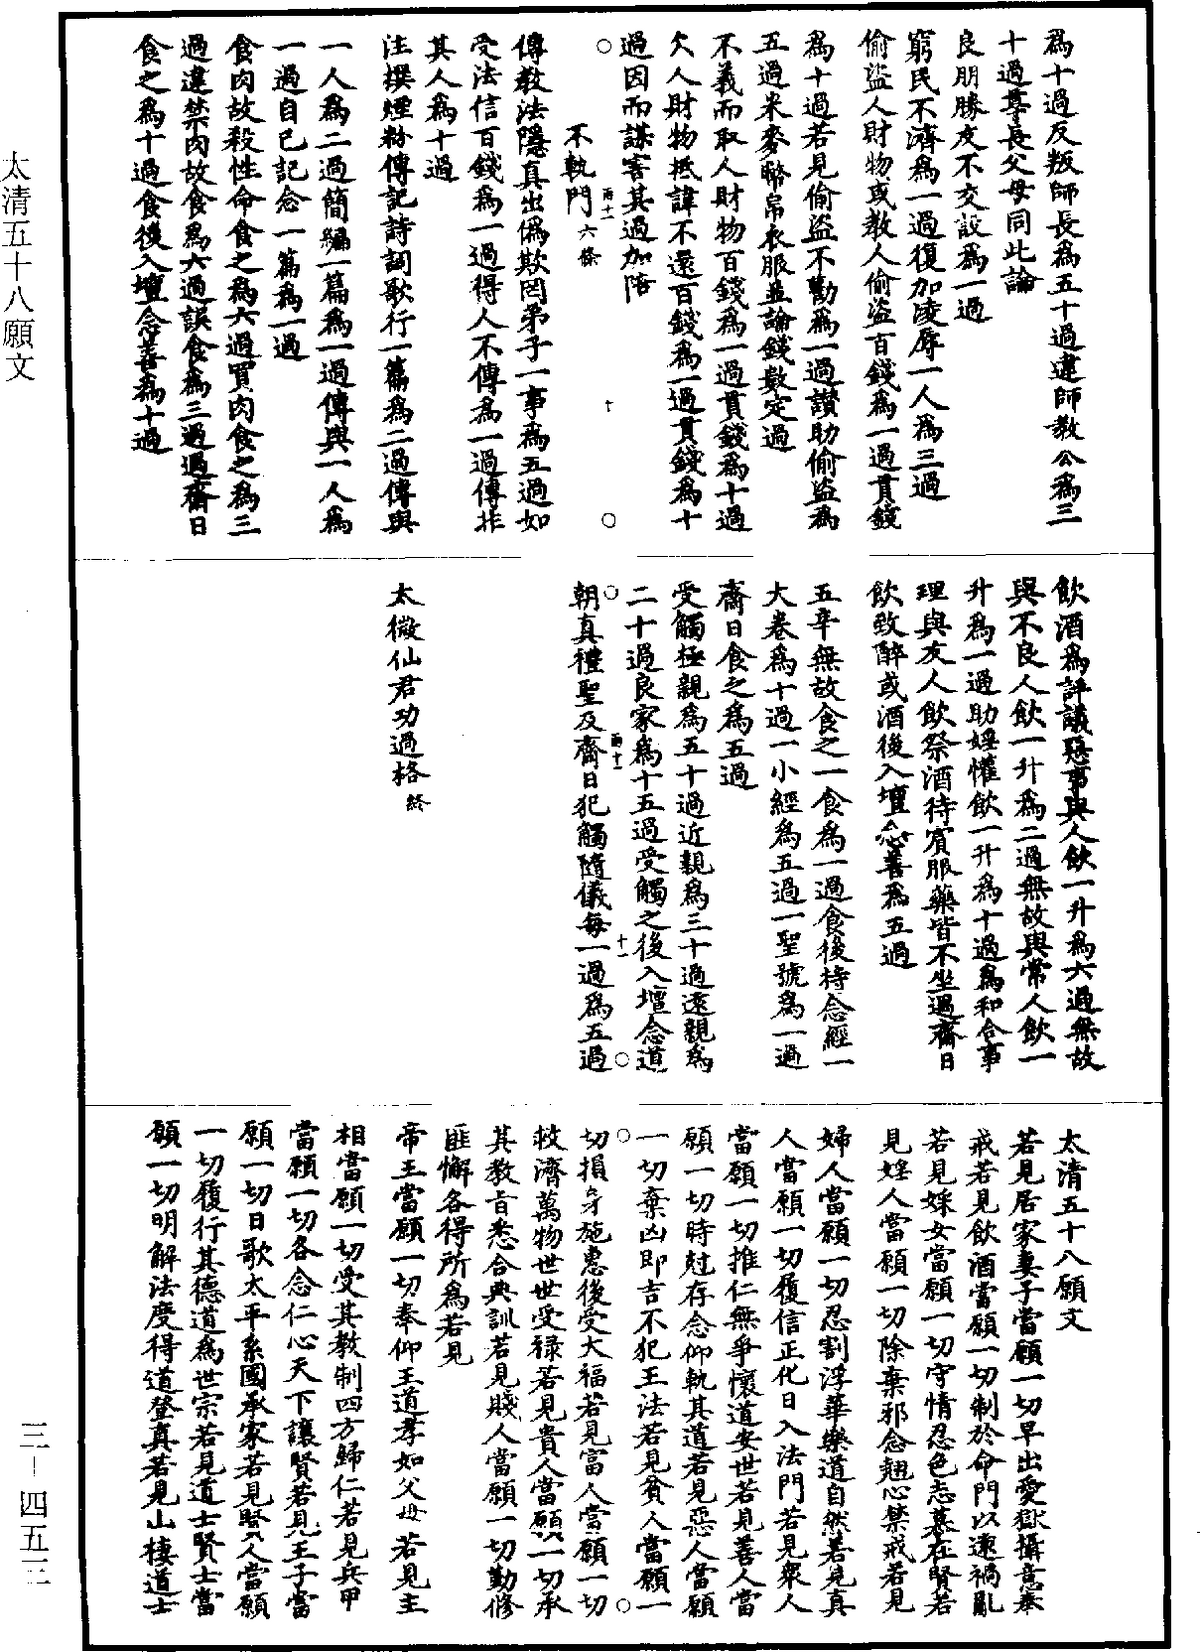 太清五十八願文
為十過反叛師長為五十過違師教公為三
十過尊長父母同此論
良朋勝友不交設為一過
窮民不濟為一過復加凌辱一人為三過
偷盜人財物或教人偷盜百錢為一過貫錢
為十過若見偷盜不勸為一過讃助偷盜為
五過米麥幣帛衣服並論錢數定過
不義而取人財物百錢為一過貫錢為十過
欠人財物抵諱不還百錢為一過貫錢為十
過因而謀害其過加陪
不軌門六條
傳教法隱真出偽欺罔弟子一事為五過如
受法信百錢為一過得人不傳為一過傳非
其人為十過
注撰煙粉傳記詩詞歌行一篇為二過傳與
一人為二過簡編一篇為一過傳與一人為
一過自已記念一篇為一過
食肉故殺性命食之為六過買肉食之為三
過違禁肉故食為六過誤食為三過過齋日
食之為十過食後入壇念善為十過
飲酒為評議惡事與人飲一升為六過無故
與不良人飲一升為二過無故與常人飲一
升為一過助婬懽飲一升為十過為和合事
理與友人飲祭酒待賓服藥皆不坐過齋日
飲致醉或酒後入壇念善為五過
五辛無故食之一食為一過食後持念經一
大卷為十過一小經為五過一聖號為一過
齋日食之為五過
受觸極親為五十過近親為三十過遠親為
二十過良家為十五過受觸之後入壇念道
朝真禮聖及齋日犯觸隨儀每一過為五過
太微仙君功過格終
太清五十八願文
若見居家妻子當願一切早出愛獄攝意奉
戒若見飲酒當願一切制於命門以遠禍亂
若見婇女當願一切守情忍色志慕在賢若
見婬人當願一切除棄邪念翹心禁戒若見
婦人當願一切忍割浮華樂道自然若見真
人當願一切履信正化日入法門若見衆人
當願一切推仁無爭懷道安世若見善人當
願一切時尅存念仰軌其道若見惡人當願
一切棄凶即吉不犯王法若見貧人當願一
切損身施惠後受大福若見富人當願一切
救濟萬物世世受祿若見貴人當願一切承
其教旨悉合典訓若見賤人當願一切勤修
匪懈各得所為若見
帝王當願一切奉仰王道孝如父母若見主
相當願一切受其教制四方歸仁若見兵甲
當願一切各念仁心天下讓賢若見王子當
願一切日歌太平系國承家若見賢人當願
一切履行其德道為世宗若見道士賢士當
願一切明解法度得道登真若見山棲道士
三—四五三